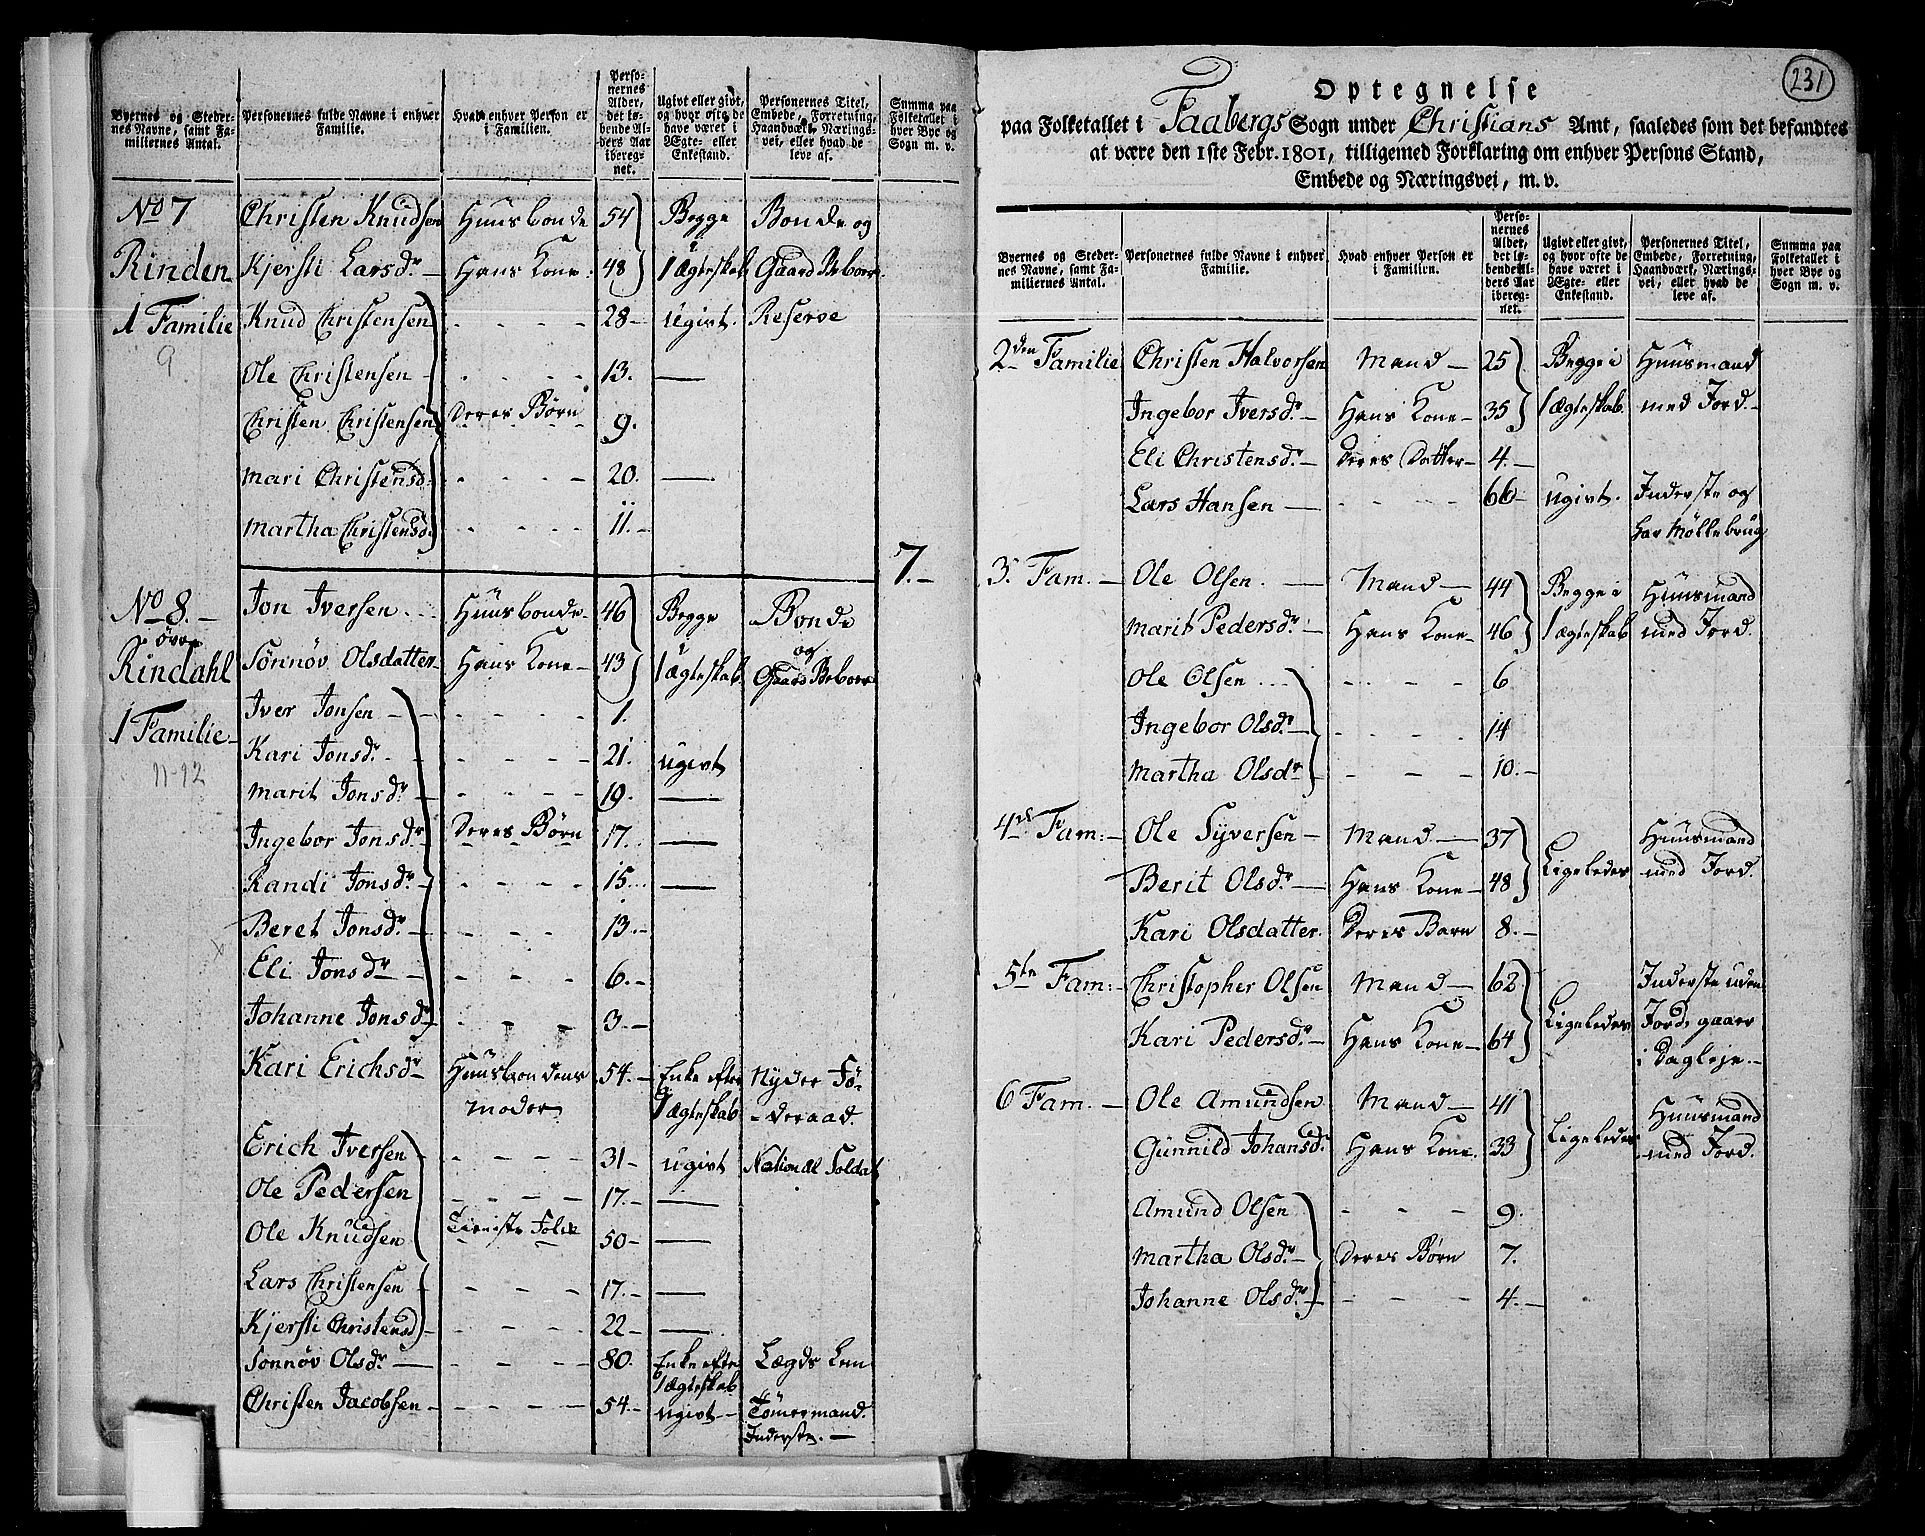 Byernes og Steder-
nes Navne, samt Fa-
miliernes Antal.
Personernes fulde Navne i enhver
Familie.
Hvad enhver Person er
i Familien.
Perso-
nernes
Alder,
det lø-
bende Al-
ders Aar
ibereg-
net.
Ugivt eller givt,
og hvor ofte de
have været i
Ægte- eller
Enkestand.
Personernes Titel,
Embede, Forretning,
Haandværk, Nærings-
vei, eller hvad de
leve af.
Summa paa
Folketallet i
hver Bye og
Sogn m. v.
No 7 Christen Knudsen Huusbonde 54 Begge Bonde og
Rinden Kjersti Larsdr. Hans Kone 48 i 1 Ægteskab Gaard Beboer
1 Familie Knud Christensen - - - - 28 ugivt. Reserve
9 Ole Christensen - - - - 13. —
Christen Christensen Deres Børn 9.
Mari Christensd. - - - - 20. —
Martha Christensd. - - - - 11. —
7.-
No 8. Jon Iversen Huusbonde 46 Begge Bonde
øvre og
Rindahl Sönnöv Olsdatter Hans Kone 43 1 ægteskab Gaard Beboer
1 Familie Iver Jonsen - - - - 1.
Kari Jonsdr. - - - - 21. ugivt
11-12 Marit Jonsdr. - - - - 19. —
Ingebor Jonsdr. Deres Børn 17. —
Randi Jonsdr. - - - - 15. —
Beret Jonsdr. - - - - 13.-
Eli Jonsdr. - - - - 6.-
Johanne Jonsdr. - - - - 3.-
Kari Erichsdr. Huusbondens 54.- Enke efter Nyder Fö-
Moder 1 ægteskab -deraad.
Erich Iversen - - - - 31- ugivt National Soldat
Ole Pedersen - - - - 17.- —
Ole Knudsen Tieniste Folk 50- —
Lars Christensen - - - - 17.- —
Kjersti Christensd. - - - - 22- —
Sonnöv Olsdr. - - - - 80. Enke efter Lægds Lem
1 ægteskab
Christen Jacobsen - - - - 54.- ugivt- Tömermand.
Inderste.-
231
Optegnelse
paa Folketallet i Faabergs Sogn under Christians Amt, saaledes som det befandtes
at være den 1ste Febr. 1801, tilligemed Forklaring om enhver Persons Stand,
Embede og Næringsvei, m. v.
Byernes og Steder-
nes Navne, samt Fa-
miliernes Antal.
Personernes fulde Navne i enhver
Familie.
Hvad enhver Person er
i Familien.
Perso-
nernes
Alder,
det lø-
bende Al-
ders Aar
ibereg-
net.
Ugivt eller givt,
og hvor ofte de
have været i
Ægte- eller
Enkestand.
Personernes Titel,
Embede, Forretning,
Haandværk, Nærings-
vei, eller hvad de
leve af.
Summa paa
Folketallet i
hver Bye og
Sogn m. v.
2den Familie Christen Halvorsen Mand - 25 Begge i Huusmand
Ingebor Iversdr. Hans Kone- 35 1 ægteskab med Jord.
Eli Christensdr. Deres Datter- 4.-
Lars Hansen - - - - 66- ugivt. Inderste og
har Möllebrug
3. Fam. Ole Olsen Mand - 44 Begge i Huusmand
Marit Pedersdr. Hans Kone- 46 1 ægteskab med Jord.
Ole Olsen - - - - 6
Ingebor Olsdr. - - - - 14
Martha Olsdr. - - - - 10.-
4de Fam. Ole Syversen- Mand - 37 Ligeledes Huusmand
Berit Olsdr. Hans Kone- 48 med Jord.
Kari Olsdatter. Deres Barn 8.-
5te Fam. Christopher Olsen Mand - 62 Ligeledes Inderste uden
Kari Pedersdr. Hans Kone- 64 Jord, gaaer
i Dagleje.-
6 Fam. Ole Amundsen Mand - 41 Ligeledes Huusmand
Gunnild Johansdr. Hans Kone. 33 med Jord.
Amund Olsen - - - 9.
Martha Olsdr. Deres Børn 7.
Johanne Olsdr. - - - 4.-